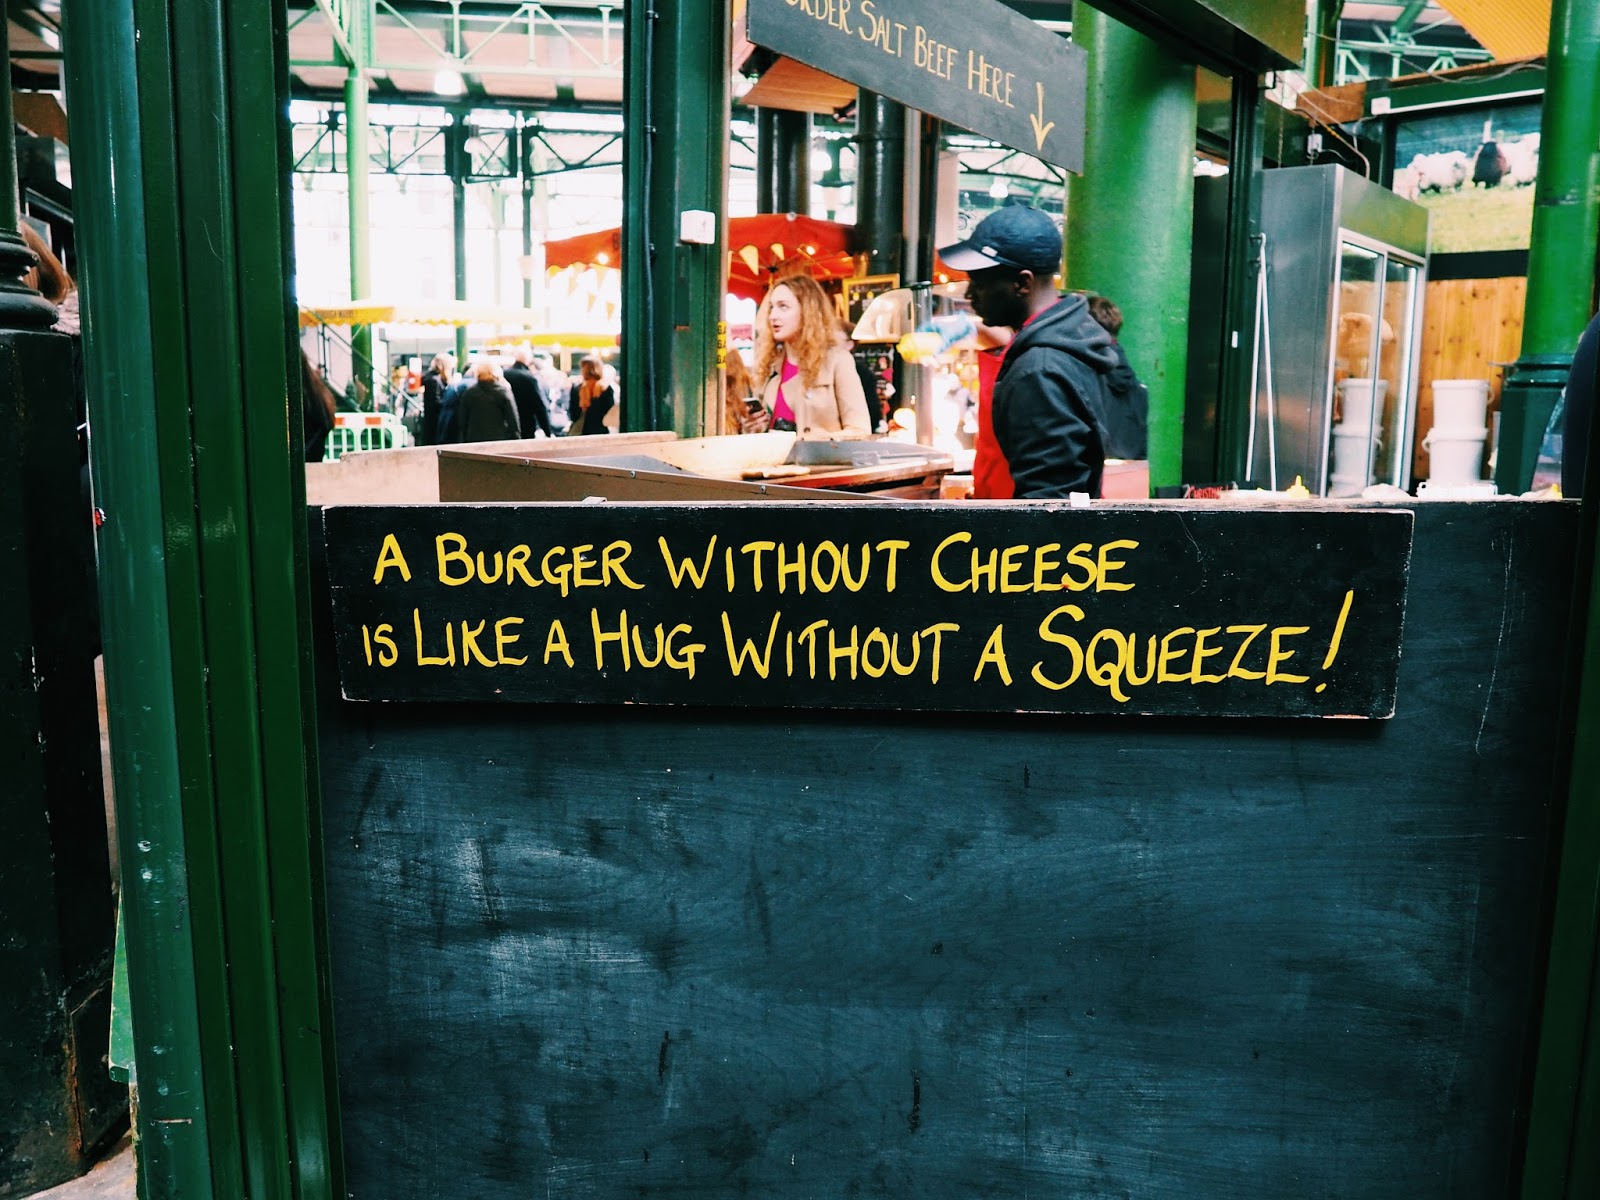 ORDER SALT BEEF HERE
A BURGER WITHOUT CHEESE
IS LIKE A HUG WITHOUT A SQUEEZE!